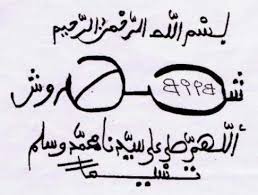 بسم الله الرحمن الرحيم
شمهروش
اللهم صل على سيدنا محمد وسلم
تسليما